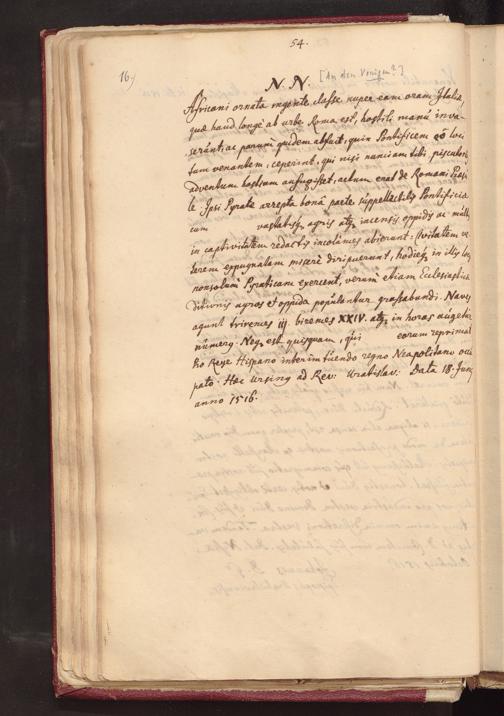 54.
16.
N. N. [An den Venigem?]
Africani ornata ingente classe nuper eam oram Italiæ,
quæ haud longè ab urbe Roma est, hostili manu inva-
serant, ac parum quidem abfuit, quin Pontificem eò loci
tum venantem, ceperint, qui nisi nuncians tibi piscatoris
adventum hostium aufugisset, actum erat de Romani
Ipsi Pyratæ arrepta bona parte suppellectilis Pontificiæ
cum vastatisq agris atq incensis oppidis ac mille
in captivitatem redactis incolumes abierunt:
expugnatam miserè diripuerunt, hodieq in illis
nonsolum Pyraticam exercent, verum etiam Eclesiastica
ditionis agros et oppida populantur grassabundi. Naves
agunt triremes iij. biremes XXIV. atq in horas augetur
numerq. Neq est quisquam, qui eorum reprimat
Rege Hispano interim tuendo regno Neapolitano occu
pato. Hæc Ursinq ad Rev: Vratislav: Data 18. Juny
anno 1516.